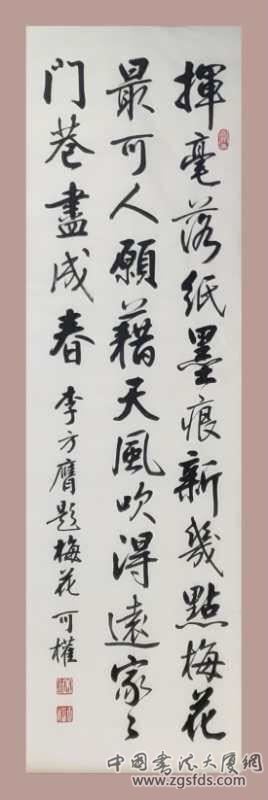 揮毫落紙墨痕新幾點梅花
最可人願藉天風吹得遠家々
門巷盡成春 李方膺題梅花 可權
中国书法大厦網
www.zgsfds.com